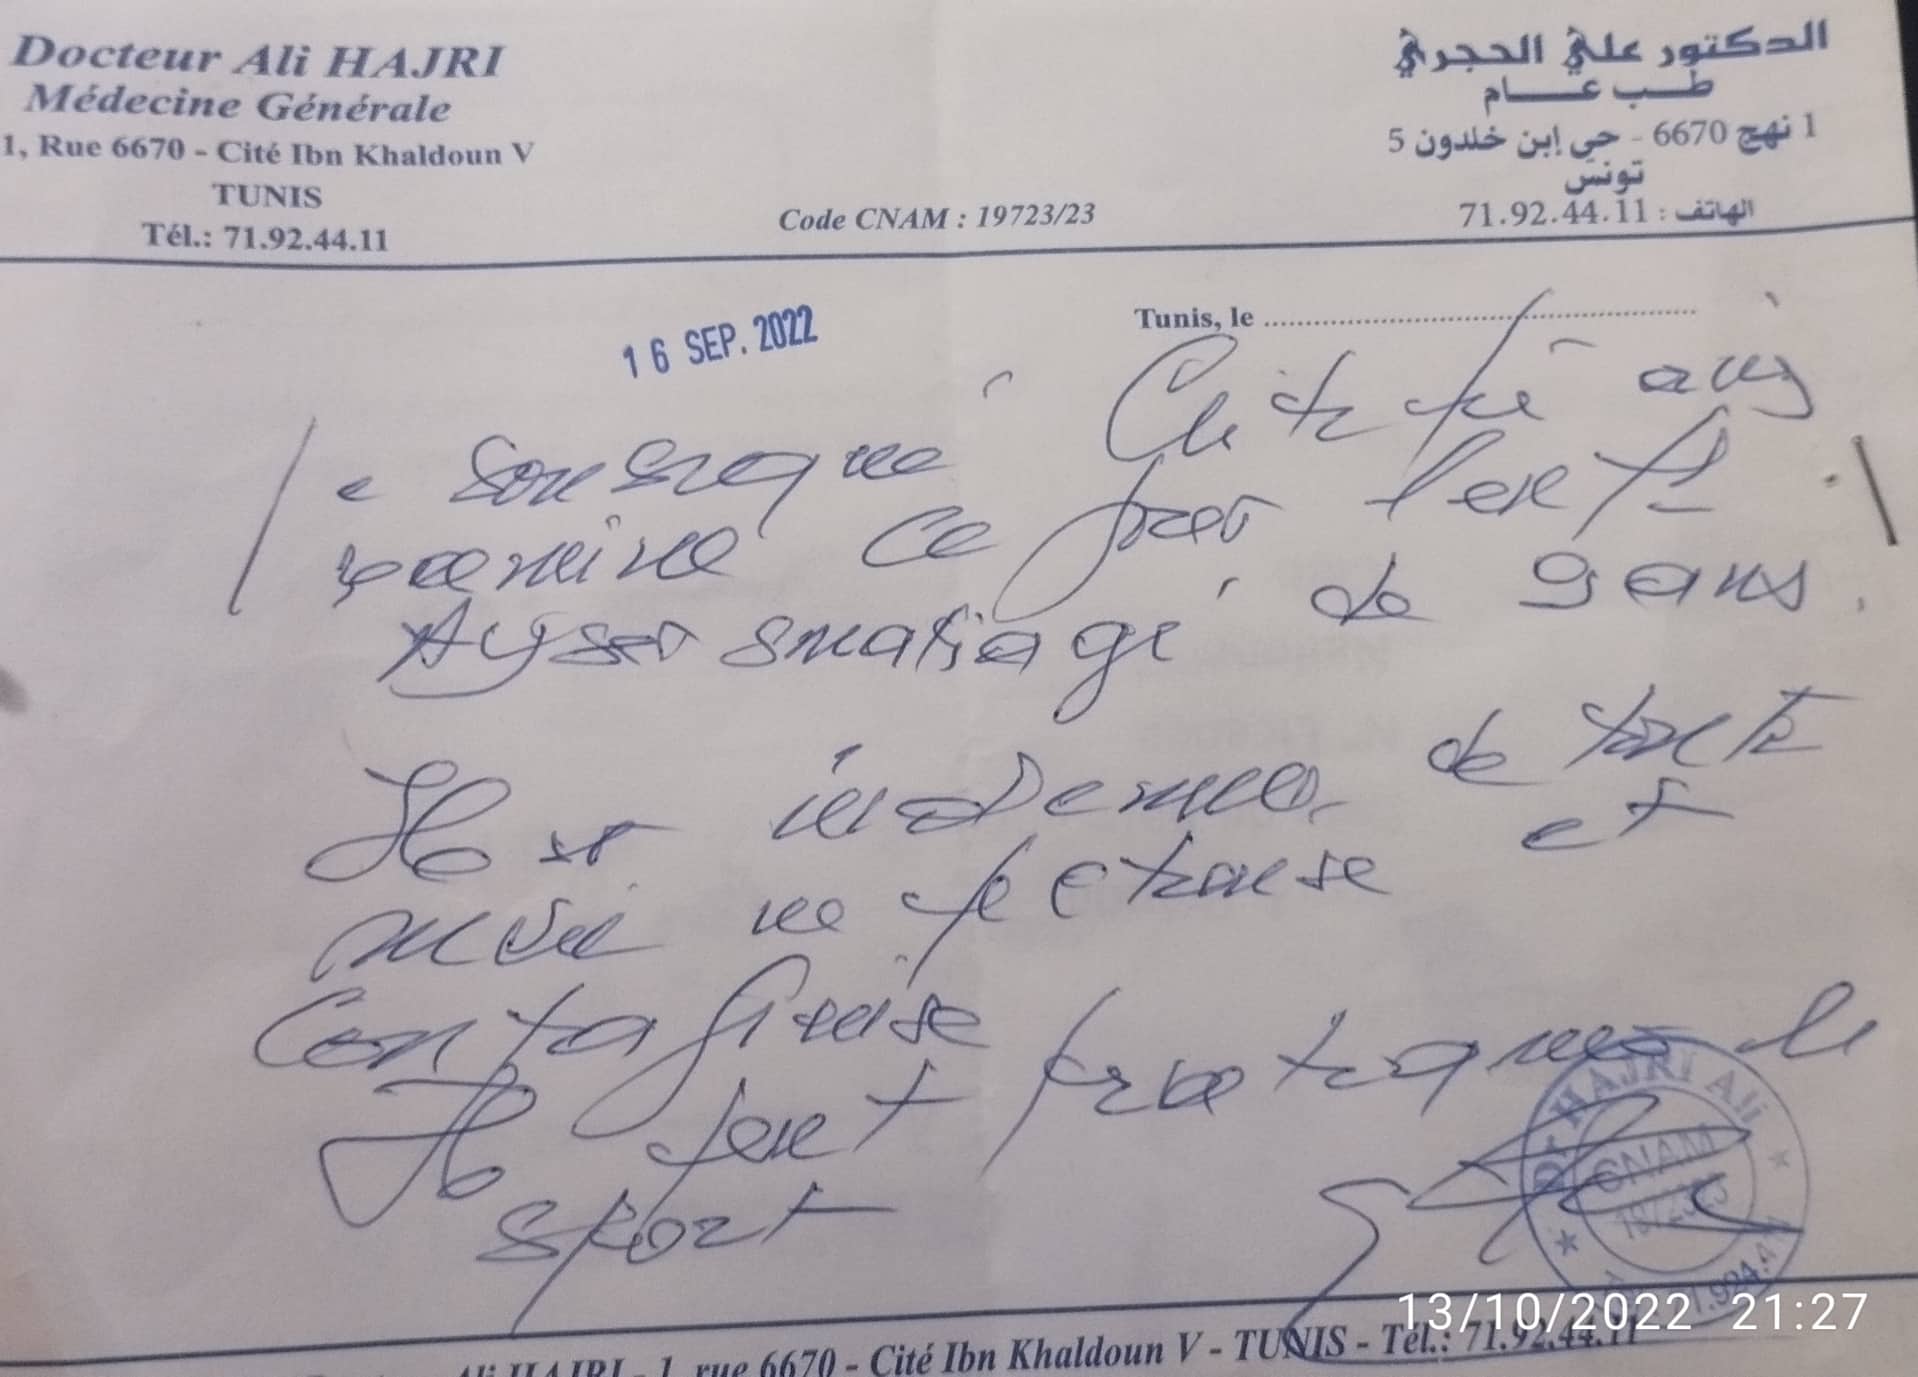 Docteur Ali HAJRI
Médecine Générale
1, Rue 6670 - Cité Ibn Khaldoun V
TUNIS
Tél.: 71.92.44.11
Code CNAM : 19723/23
الدكتور علي الحجري
طب عام
1 نهج 6670 - حي إبن خلدون 5
تونس
الهاتف : 71.92.44.11
Tunis, le
16 SEP. 2022
Je soussigné Certifié avoir
examiné ce jour l'enfant
Ayser âgé de 9 ans
Il est indemne de toute
maladie infectieuse et
Contagieuse
Il peut pratiquer le
sport
Dr HAJRI Ali
CNAM
13/10/2022 21:27
Ali HAJRI - 1, rue 6670 - Cité Ibn Khaldoun V - TUNIS - Tél.: 71.92.44.11